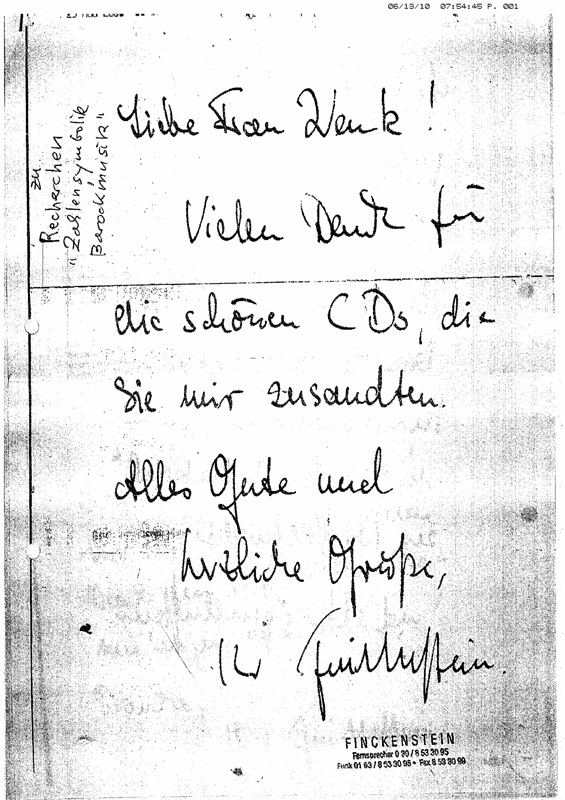 06/13/10 07:54:45 P. 001
zu
Recherchen
"Zahlensymbolik
Barockmusik"
Liebe Frau Wenk!
Vielen Dank für
die schönen CDs, die
Sie mir zusandten.
Alles Gute und
herzliche Grüße,
Ihr Finckenstein.
FINCKENSTEIN
Fernsprecher 0 30 / 8 53 30 95
Funk 01 63 / 8 53 30 95 • Fax 8 53 30 99